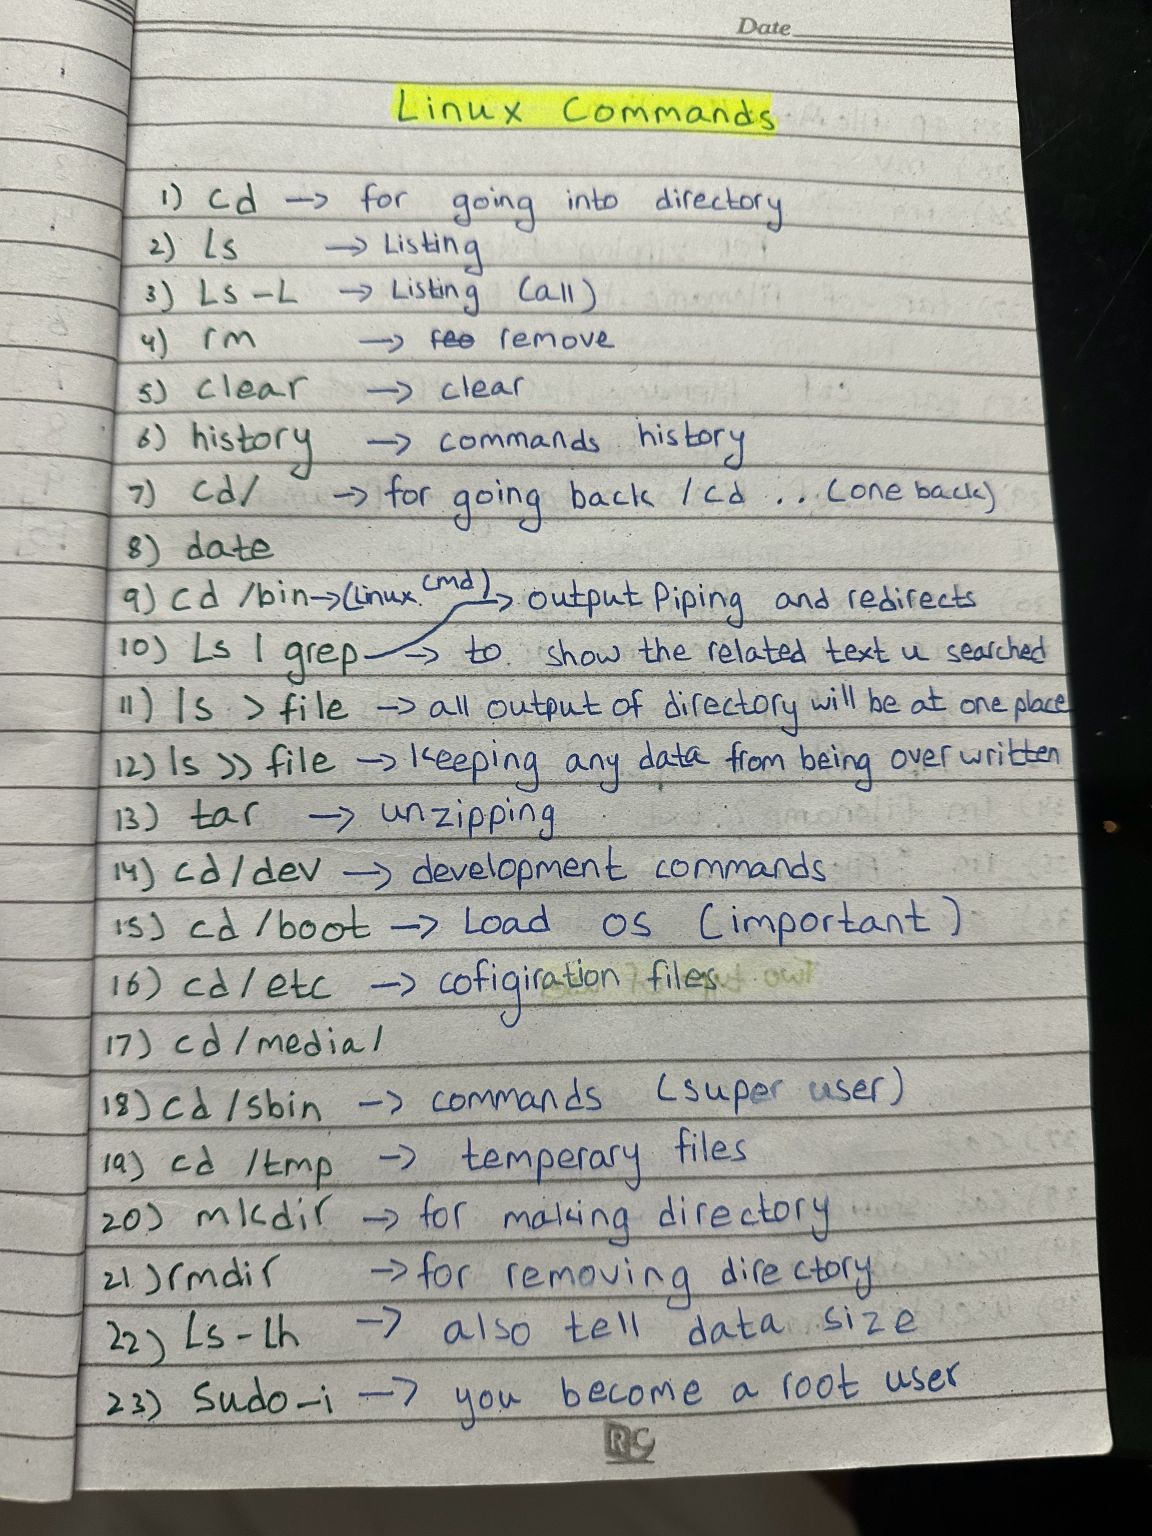 Date
Linux Commands
1) cd → for going into directory
2) Ls → Listing
3) Ls -L → Listing (all)
4) rm → remove
5) clear → clear
6) history → commands history
7) cd/ → for going back / cd .. (one back)
8) date
9) cd /bin → (Linux cmd) → output Piping and redirects
10) Ls | grep → to show the related text u searched
11) ls > file → all output of directory will be at one place
12) ls >> file → keeping any data from being over written
13) tar → unzipping
14) cd/dev → development commands
15) cd /boot → Load os (important)
16) cd/etc → cofigiration files
17) cd/media/
18) cd /sbin → commands (super user)
19) cd /tmp → temperary files
20) mkdir → for making directory
21) rmdir → for removing directory
22) Ls -lh → also tell data size
23) Sudo -i → you become a root user
RC